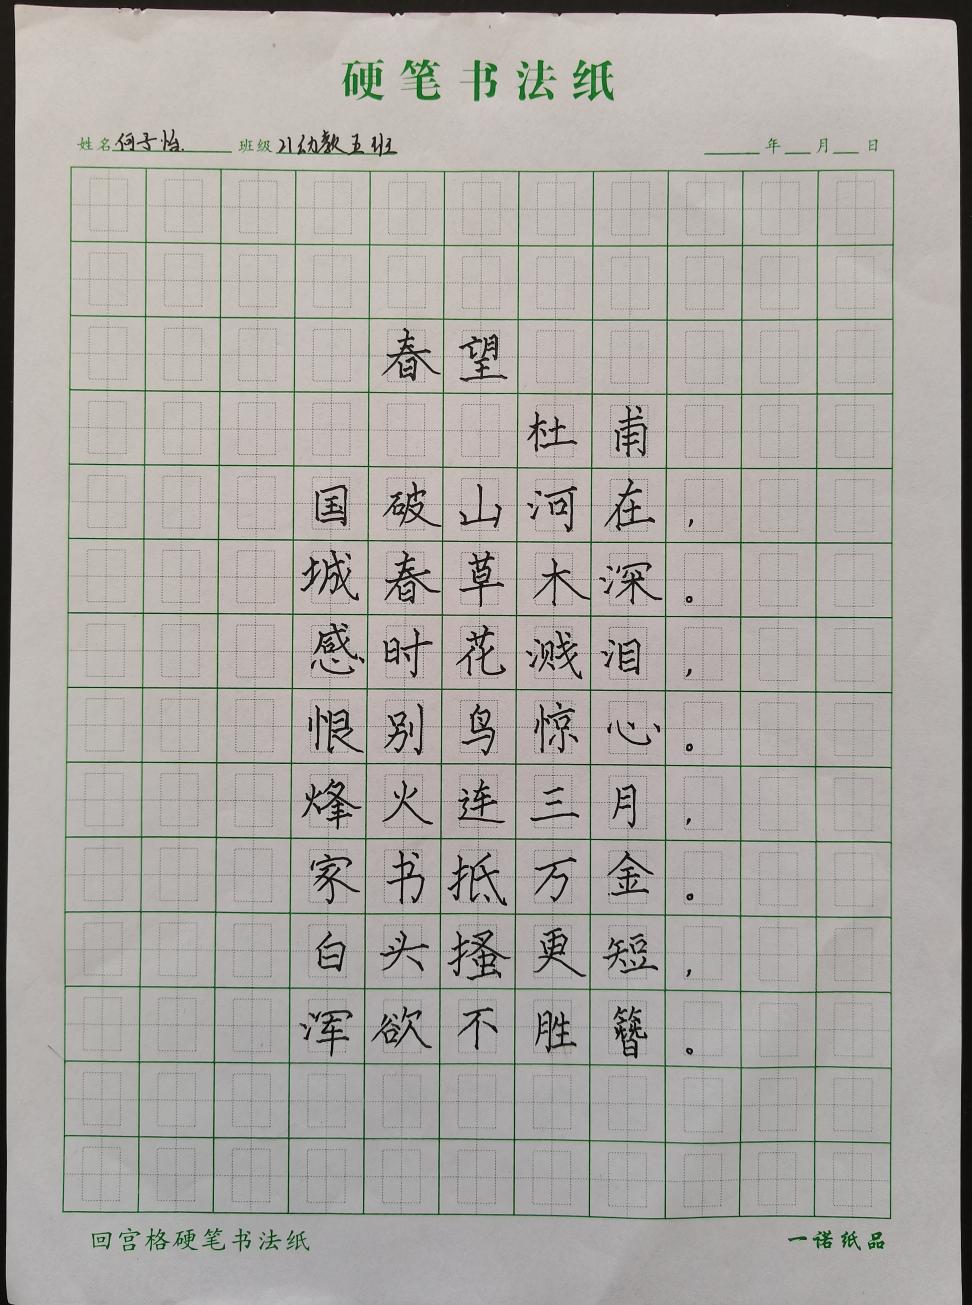 硬笔书法纸
姓名 何子怡. 班级 21幼教五班 年 月 日
春望
杜甫
国破山河在，
城春草木深。
感时花溅泪，
恨别鸟惊心。
烽火连三月，
家书抵万金。
白头搔更短，
浑欲不胜簪。
回宫格硬笔书法纸 一诺纸品